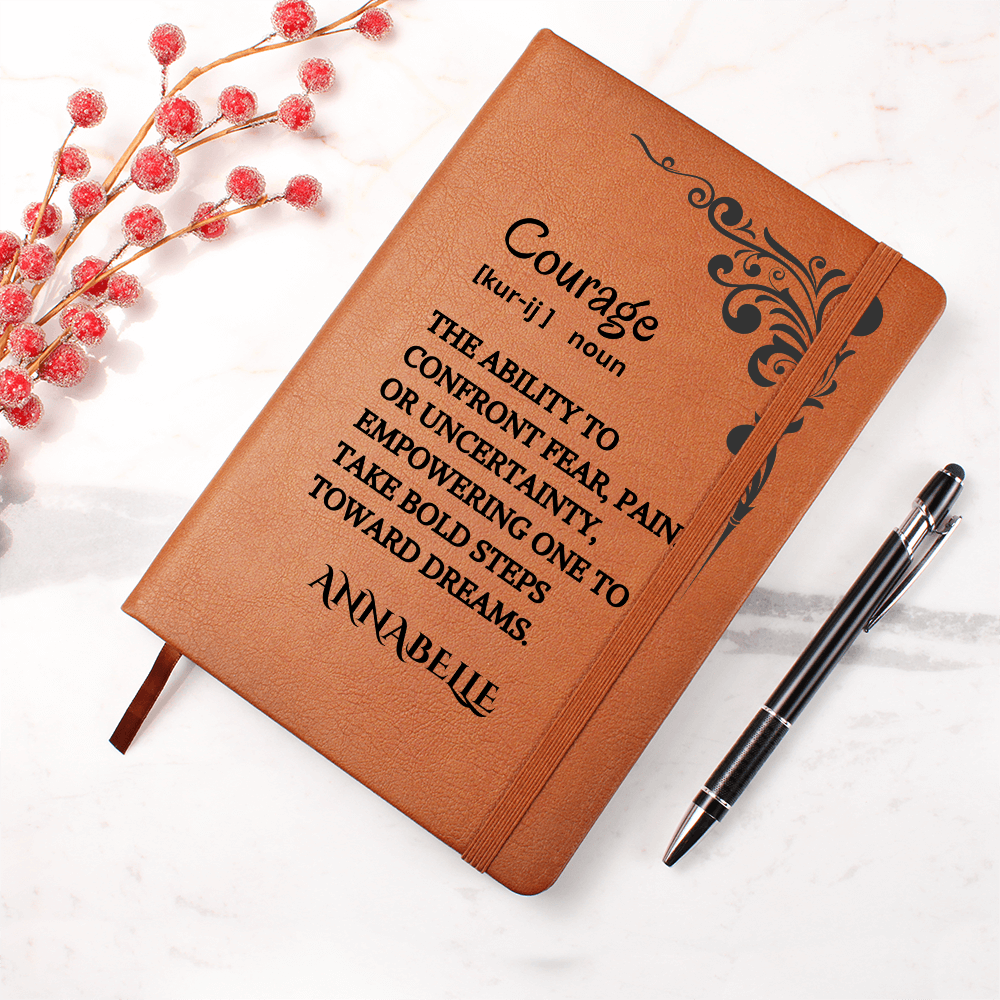 Courage
[kur-ij] noun
THE ABILITY TO
CONFRONT FEAR, PAIN,
OR UNCERTAINTY,
EMPOWERING ONE TO
TAKE BOLD STEPS
TOWARD DREAMS.
ANNABELLE